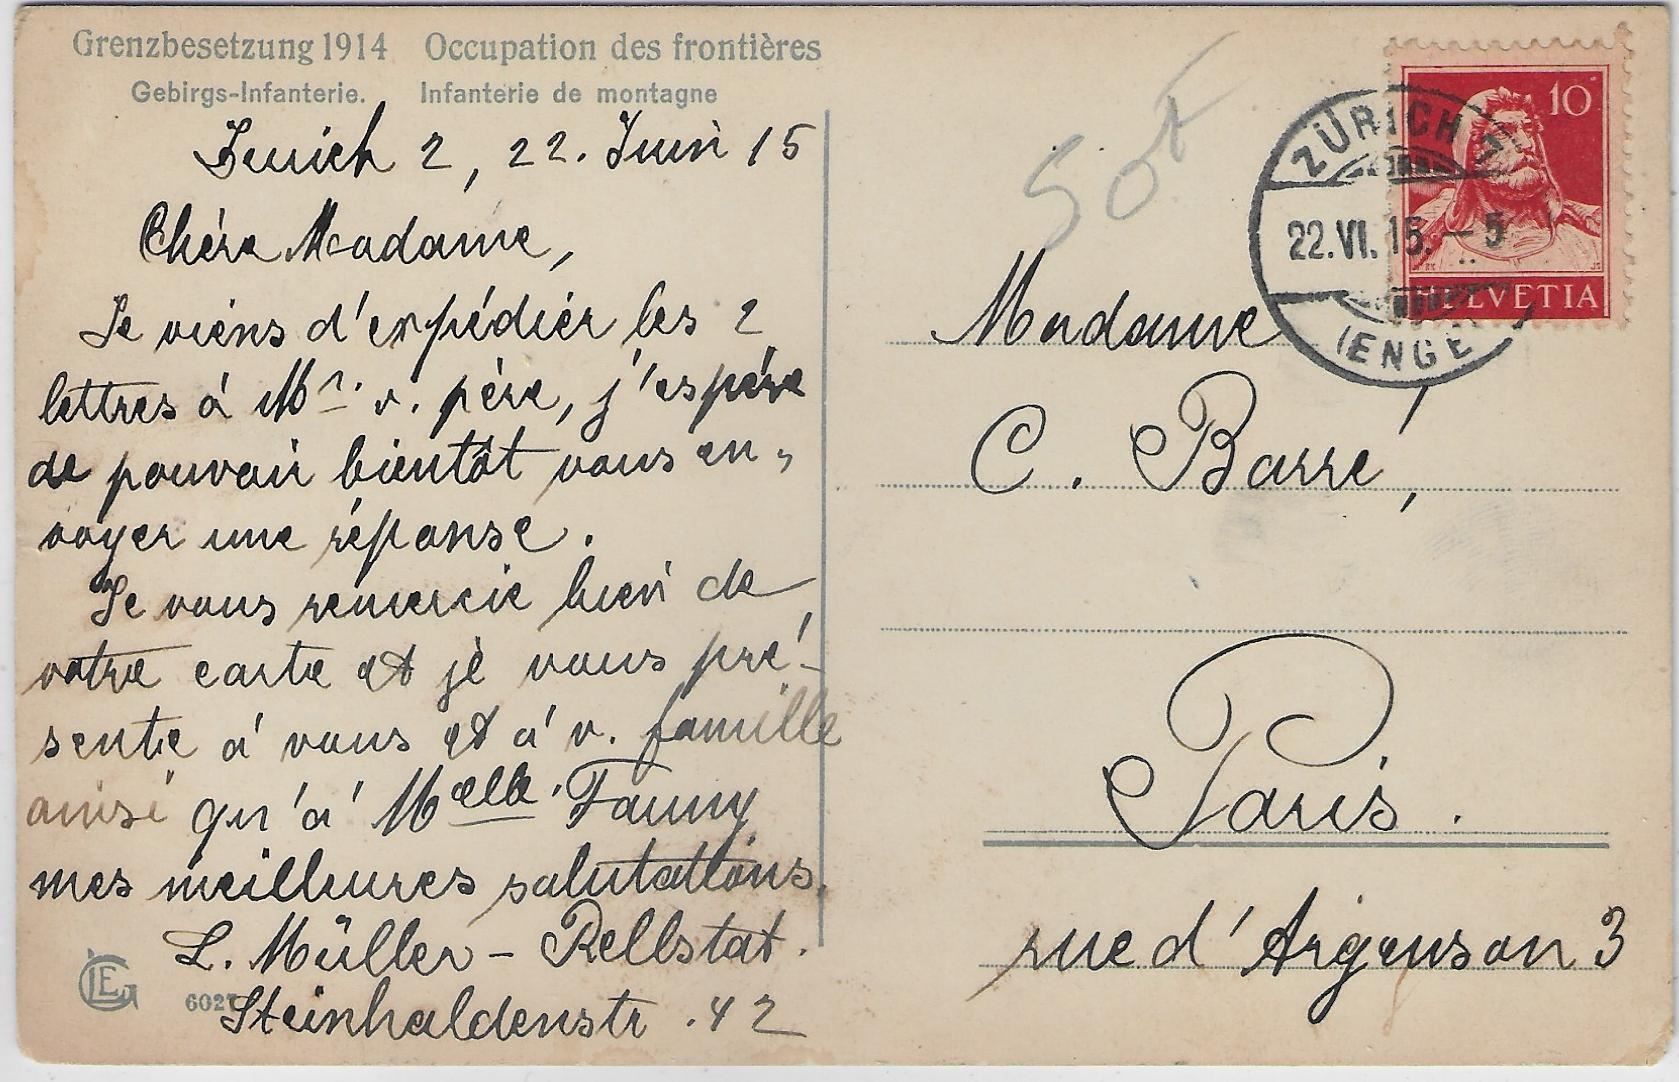 Grenzbesetzung 1914 Occupation des frontières
Gebirgs-Infanterie. Infanterie de montagne
Zurich 2, 22. Juin 15
Chère Madame,
Je viens d'expédier les 2
lettres à Mr. v. père, j'espère
de pouvoir bientôt vous en-
voyer une réponse.
Je vous remercie bien de
votre carte et je vous pré-
sente à vous et à v. famille
ainsi qu'à Melle. Fanny
mes meilleures salutations.
L. Müller - Rellstat.
Steinhaldenstr. 42
6027
50t
10
HELVETIA
ZÜRICH
22.VI.15.-5
(ENGE)
Madame
C. Barré,
Paris.
rue d'Argenson 3